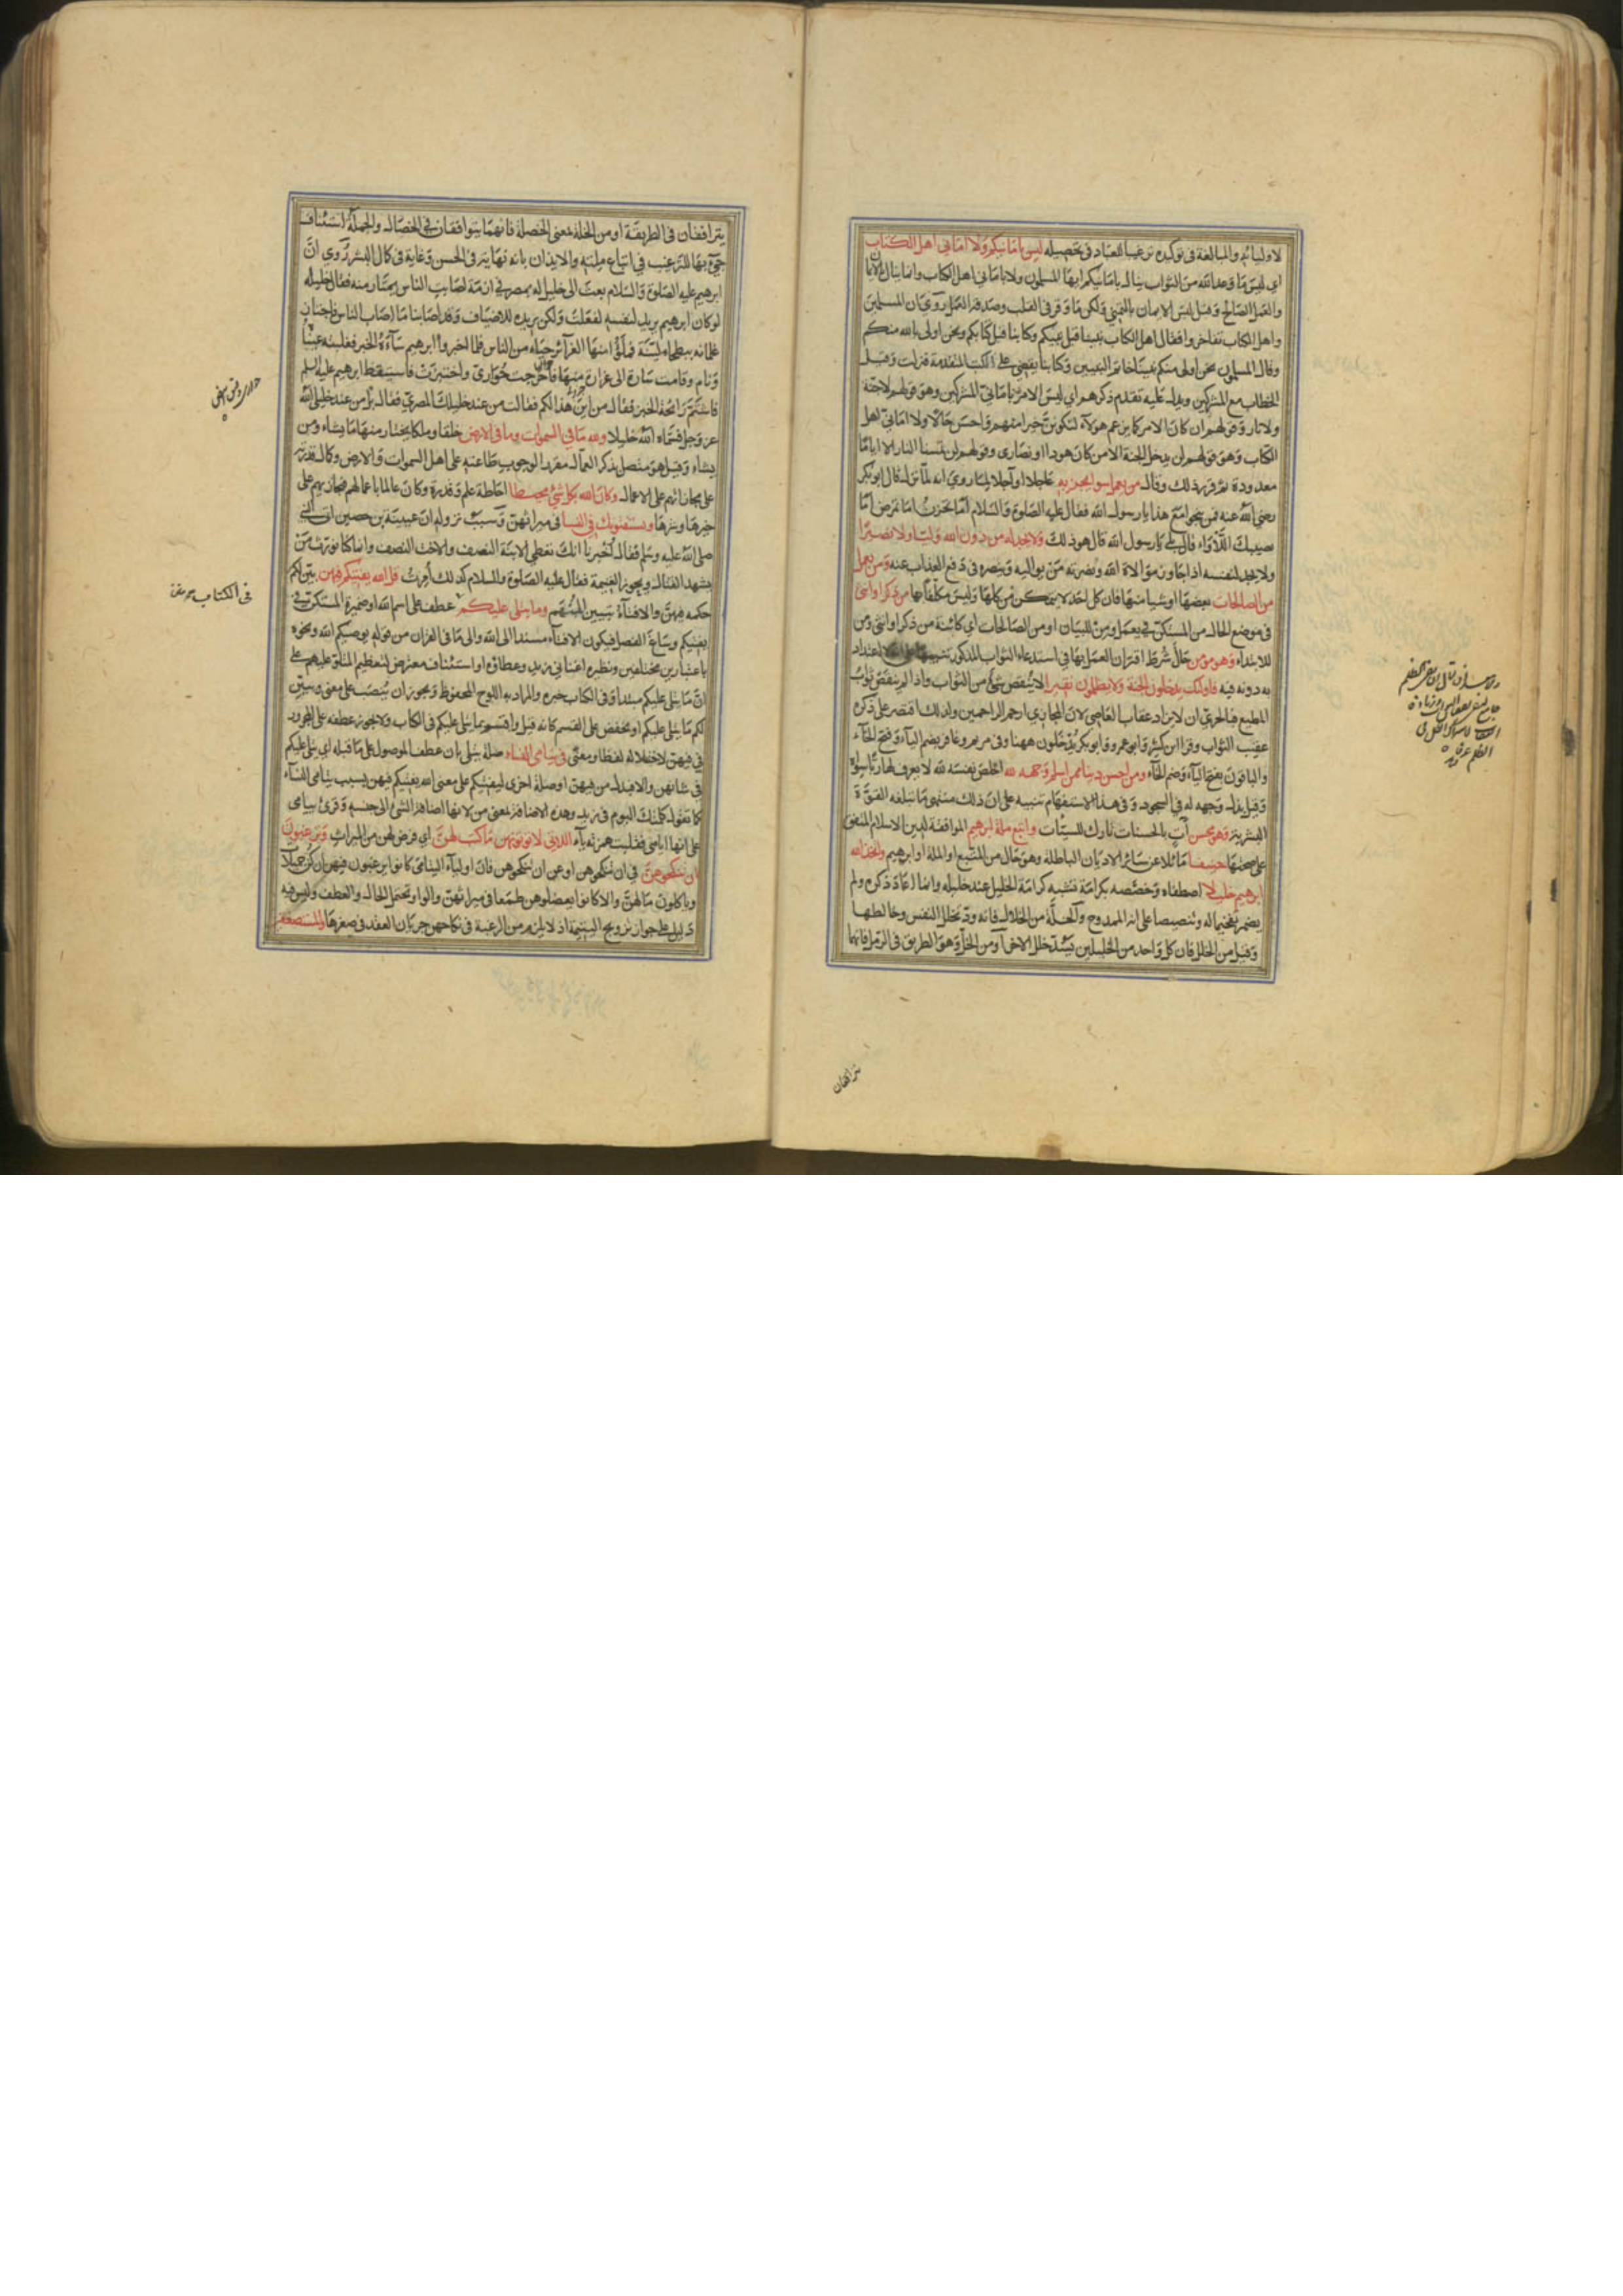 لاوليائه والمبالغة فى توكيده ترغيبا للعباد فى تحصيله ليس بامانيكم ولا امانى اهل الكتاب
اى ليس ما وعد الله من الثواب ينال بامانيكم ايها المسلمون ولا بامانى اهل الكتاب وانما ينال بالايمان
والعمل الصالح وقيل ليس الايمان بالتمنى ولكن ما وقر فى القلب وصدقه العمل روى ان المسلمين
واهل الكتاب تفاخروا فقال اهل الكتاب نبينا قبل نبيكم وكتابنا قبل كتابكم ونحن اولى بالله منكم
وقال المسلمون نحن اولى منكم نبينا خاتم النبيين وكتابنا يقضى على الكتب المتقدمة فنزلت وقيل
الخطاب مع المشركين ويدل عليه تقدم ذكرهم اى ليس الامر بامانى المشركين وهو قولهم لا جنة
ولا نار وقولهم ان كان الامر كما يزعم هؤلاء لنكونن خيرا منهم واحسن حالا ولا امانى اهل
الكتاب وهو قولهم لن يدخل الجنة الا من كان هودا او نصارى وقولهم لن تمسنا النار الا اياما
معدودة ثم قرر ذلك وقال من يعمل سوأ يجز به عاجلا او آجلا لما روى انه لما نزل قال ابو بكر
رضى الله عنه فمن ينجو مع هذا يا رسول الله فقال عليه الصلوة والسلام اما تحزن اما تمرض اما
يصيبك اللأواء قال بلى يا رسول الله قال هو ذلك ولا يجد له من دون الله وليا ولا نصيرا
ولا يجد لنفسه اذا جاوز موالاة الله ونصرته من يواليه وينصره فى دفع العذاب عنه ومن يعمل
من الصالحات بعضها او شيا منها فان كل احد لا يتمكن من كلها وليس مكلفا بها من ذكر او انثى
فى موضع الحال من المستكن فى يعمل ومن للبيان او من الصالحات اى كائنة من ذكر او انثى ومن
للابتداء وهو مؤمن حال شرط اقتران العمل بها فى استدعاء الثواب المذكور تنبيها على انه لا اعتداد
به دونه فيه فاولئك يدخلون الجنة ولا يظلمون نقيرا لا ينقص شئ من الثواب واذا لم ينقص ثواب
المطيع فبالحرى ان لا يزاد عقاب العاصى لان المجازى ارحم الراحمين ولذلك اقتصر على ذكره
عقيب الثواب وقرا ابن كثير وابو عمرو وابو بكر يدخلون ههنا وفى مريم وغافر بضم الياء وفتح الخاء
والباقون بفتح الياء وضم الخاء ومن احسن دينا ممن اسلم وجهه لله اخلص نفسه لله لا يعرف لها ربا سواه
وقيل بذل وجهه له فى السجود وفى هذا الاستفهام تنبيه على ان ذلك منتهى ما تبلغه القوة
البشرية وهو محسن آت بالحسنات تارك للسيئات واتبع ملة ابرهيم الموافقة لدين الاسلام المتفق
على صحتها حنيفا مائلا عن سائر الاديان الباطلة وهو حال من المتبع او الملة او ابرهيم واتخذ الله
ابرهيم خليلا اصطفاه وخصصه بكرامة تشبه كرامة الخليل عند خليله وانما اعاد ذكره ولم
يضمر تفخيما له وتنصيصا على انه الممدوح والخلة من الخلال فانه ود تخلل النفس وخالطها
وقيل من الخلل فان كل واحد من الخليلين يسد خلل الاخر او من الخل وهو الطريق فى الرمل فانهما
يترافقان
يترافقان فى الطريقة او من الخلة بمعنى الخصلة فانهما يتوافقان فى الخصال والجملة استئناف
جئ بها للترغيب فى اتباع ملته والايذان بانه نهاية فى الحسن وغاية فى كمال البشر روى ان
ابرهيم عليه الصلوة والسلام بعث الى خليل له بمصر فى ازمة اصابت الناس يمتار منه فقال خليله
لو كان ابرهيم يريد لنفسه لفعلت ولكن يريده للاضياف وقد اصابنا ما اصاب الناس فاجتاز
غلمانه ببطحاء لينة فملؤا منها الغرائر حياء من الناس فلما اخبروا ابرهيم ساءه الخبر فغلبته عيناه
ونام وقامت سارة الى غرارة منها فاخرجت حوارى واختبزت فاستيقظ ابرهيم عليه السلم
فاشتم رائحة الخبز فقال من اين هذا لكم فقالت من عند خليلك المصرى فقال بل من عند خليلى الله
عز وجل فسماه الله خليلا ولله ما فى السموات وما فى الارض خلقا وملكا يختار منهما ما يشاء ومن
يشاء وقيل هو متصل بذكر العمال مقرر لوجوب طاعته على اهل السموات والارض وكمال قدرته
على مجازاتهم على الاعمال وكان الله بكل شئ محيطا احاطة علم وقدرة وكان عالما باعمالهم فيجازيهم على
خيرها وشرها ويستفتونك فى النسا فى ميراثهن وسبب نزوله ان عيينة بن حصين اتى النبى
صلى الله عليه وسلم فقال اخبرنا انك تعطى الابنة النصف والاخت النصف وانما كنا نورث من
يشهد القتال ويحوز الغنيمة فقال عليه الصلوة والسلام كذلك امرت قل الله يفتيكم فيهن يبين لكم
حكمه فيهن والافتاء تبيين المبهم وما يتلى عليكم عطف على اسم الله او ضميره المستكن فى
يفتيكم وساغ الفصل فيكون الافتاء مسندا الى الله والى ما فى القران من قوله يوصيكم الله ونحوه
باعتبارين مختلفين ونظيره اغنانى زيد وعطاؤه او استئناف معترض لتعظيم المتلو عليهم على
ان ما يتلى عليكم مبتدا وفى الكتاب خبره والمراد به اللوح المحفوظ ويجوز ان ينصب على معنى ويبين
لكم ما يتلى عليكم او يخفض على القسم كانه قيل واقسم بما يتلى عليكم فى الكتاب ولا يجوز عطفه على المجرور
فى فيهن لاختلاله لفظا ومعنى فى يتامى النساء صلة يتلى بان عطف الموصول على ما قبله اى يتلى عليكم
فى شانهن والا فبدل من فيهن او صلة اخرى ليفتيكم على معنى الله يفتيكم فيهن بسبب يتامى النساء
كما تقول كلمتك اليوم فى زيد وهذه الاضافة بمعنى من لانها اضافة الشئ الى جنسه وقرئ ييامى
على انها ايامى فقلبت همزته ياء اللاتى لا تؤتونهن ما كتب لهن اى فرض لهن من الميراث وترغبون
ان تنكحوهن فى ان تنكحوهن او عن ان تنكحوهن فان اولياء اليتامى كانوا يرغبون فيهن ان كن جميلات
وياكلون مالهن والا كانوا يعضلوهن طمعا فى ميراثهن والواو تحتمل الحال والعطف وليس فيه
دليل على جواز تزويج اليتيمة اذ لا يلزم من الرغبة فى نكاحهن جريان العقد فى صغرها والمستضعفين
فى الكتاب